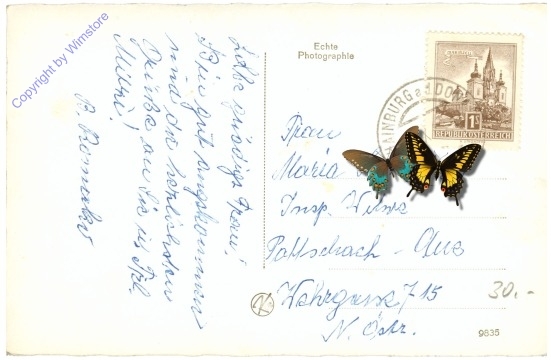 Copyright by Wimstore
Liebe gnädige Frau!
Bin gut angekommen
und die herzlichsten
Grüße an Sie u. Frl.
Mitzi!
Echte
Photographie
MARIAZELL
1S
REPUBLIK ÖSTERREICH
HAINBURG a.d. DON
Frau
Maria
Insp. Witwe
Pottschach - Aue
Wehrgasse 715
N. Östr.
30.-
K
9835